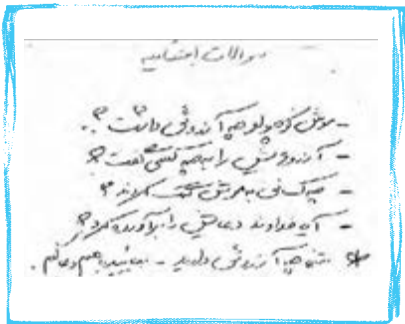 سوالات اجتماعیه
- موش کوچولو چه آرزوئی داشت؟
- آرزویش را به چه کسی گفت؟
- چه کسانی به موش کمک کردند؟
- آیا خداوند دعایش را برآورده کرد؟
* شما چه آرزوئی دارید - بیائید باهم دعا کنیم.